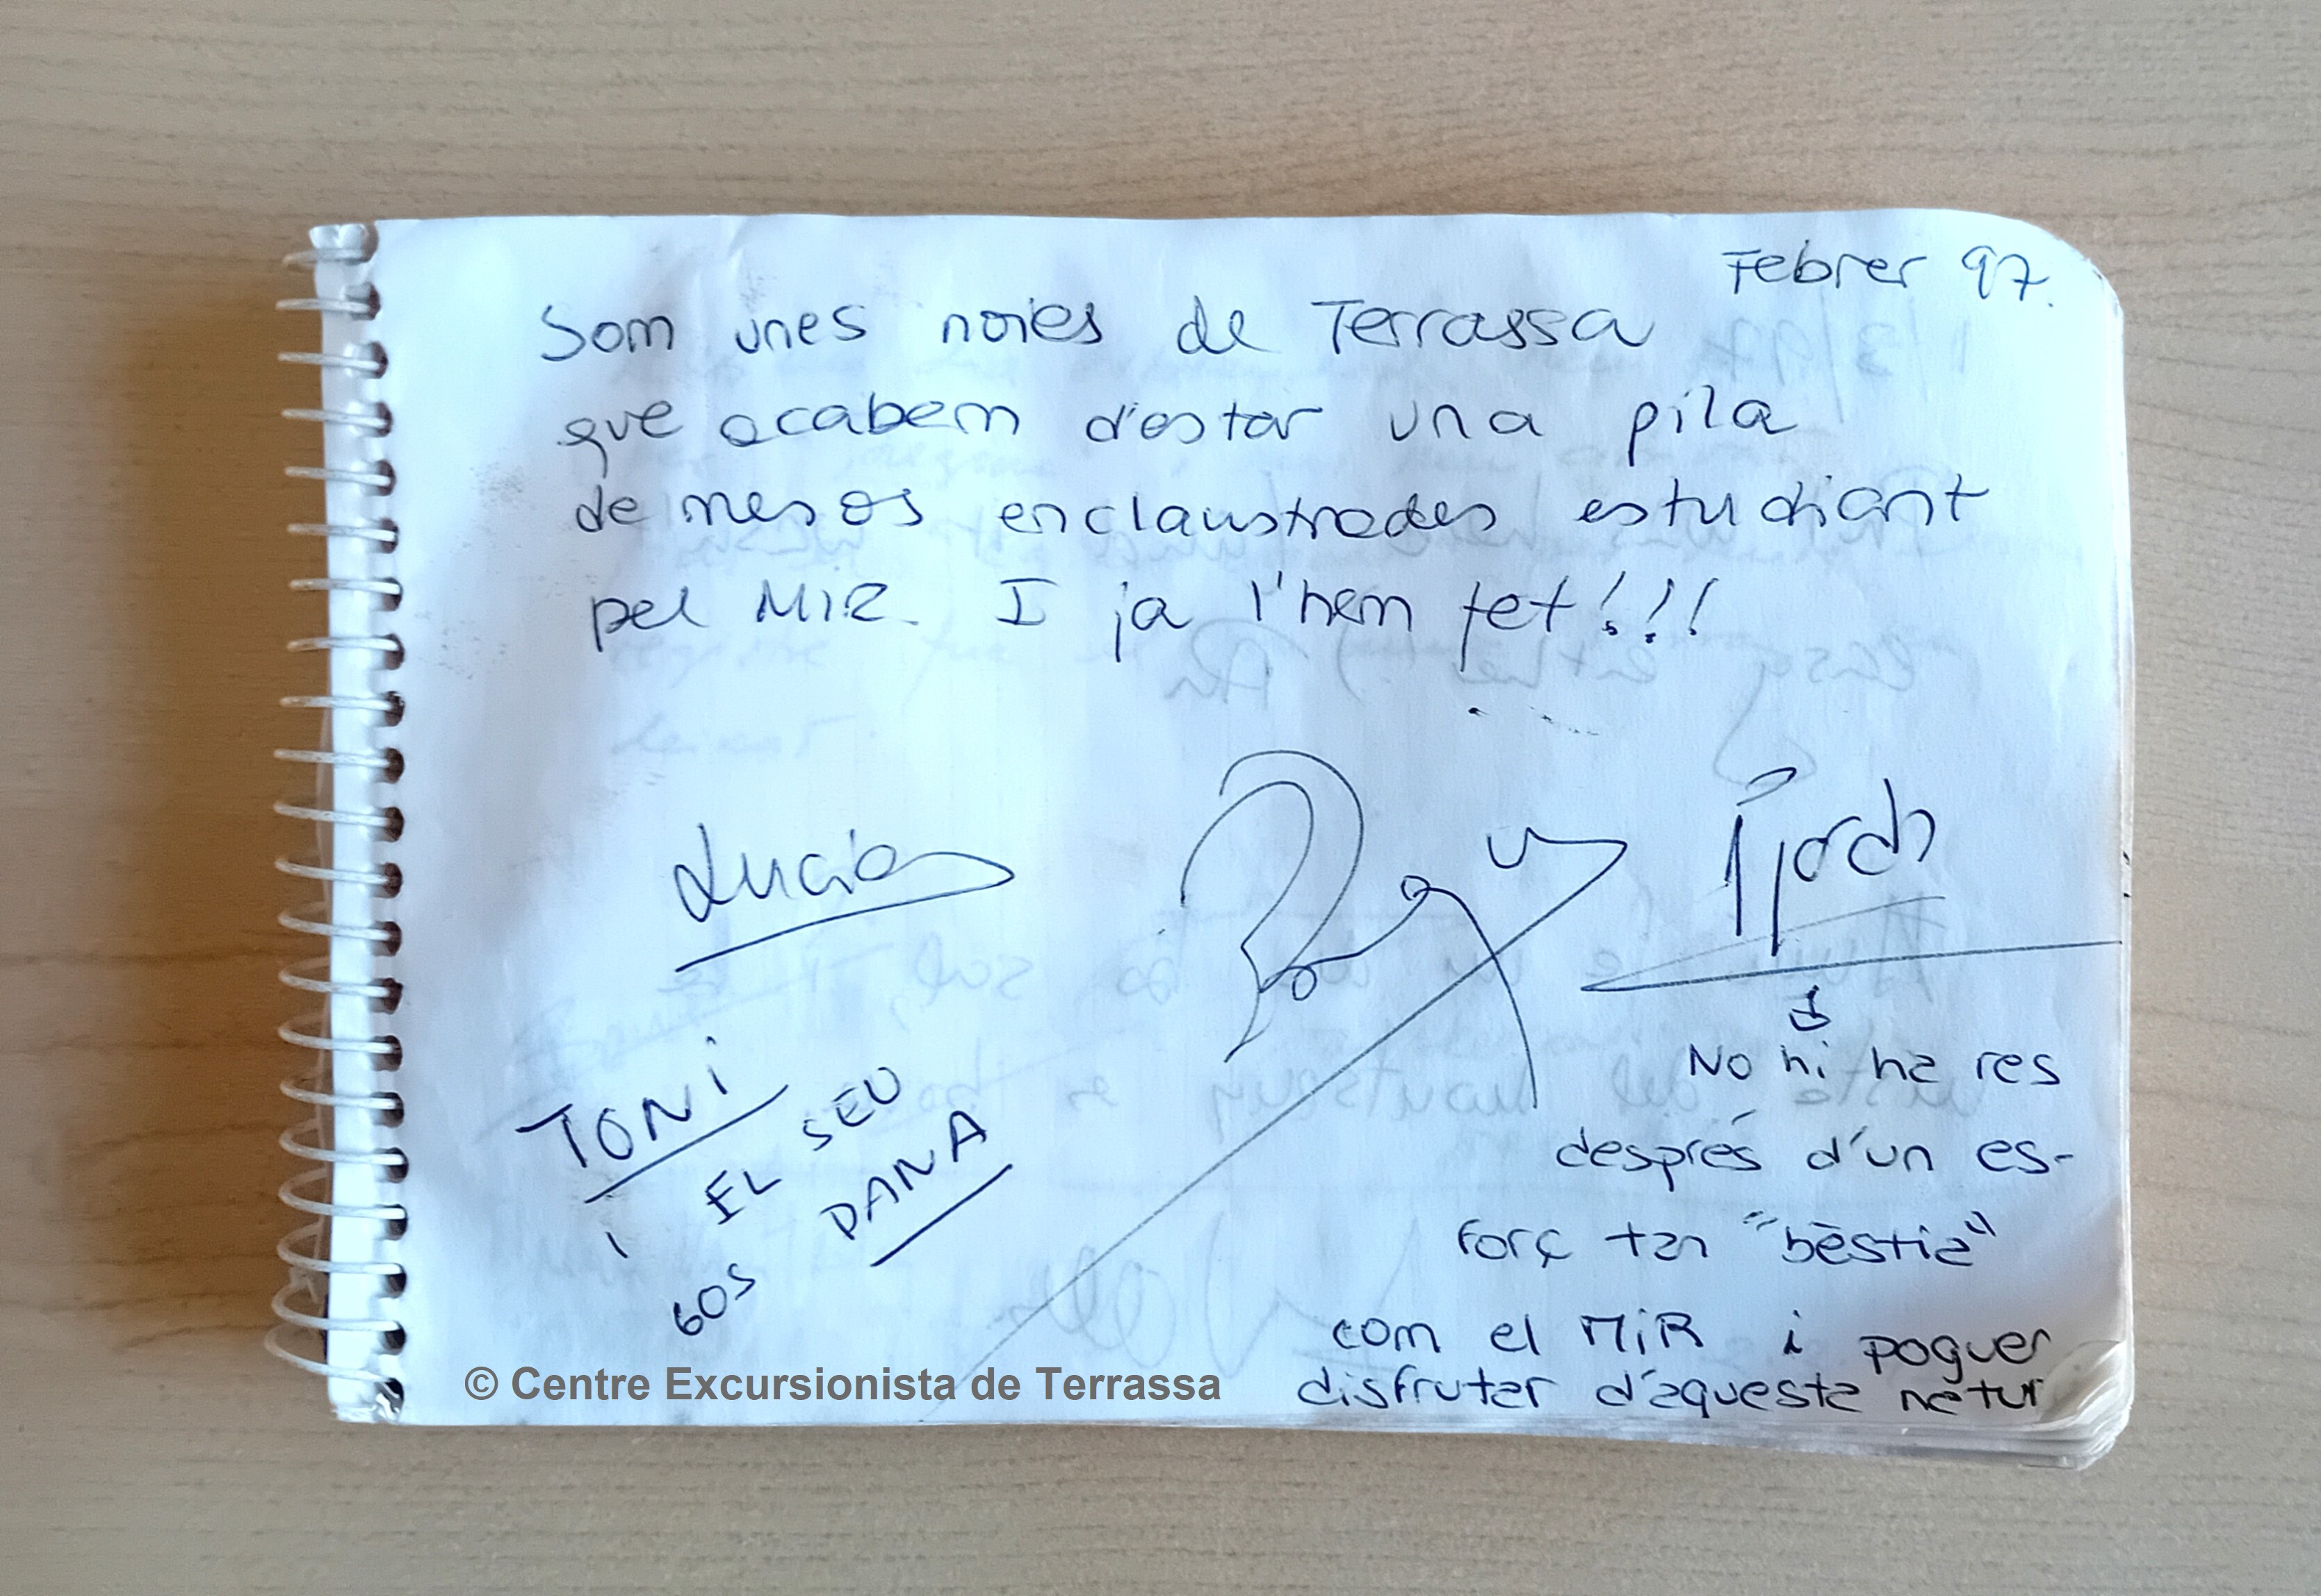 Febrer 97.
Som unes noies de Terrassa
que acabem d'estar una pila
de mesos enclaustrades estudiant
pel MIR. I ja l'hem fet!!!
Lucia
Jordi
TONI
i EL SEU
GOS DANA
No hi ha res
després d'un es-
forç tan "bèstia"
com el MiR i poguer
disfrutar d'aquesta natur
© Centre Excursionista de Terrassa